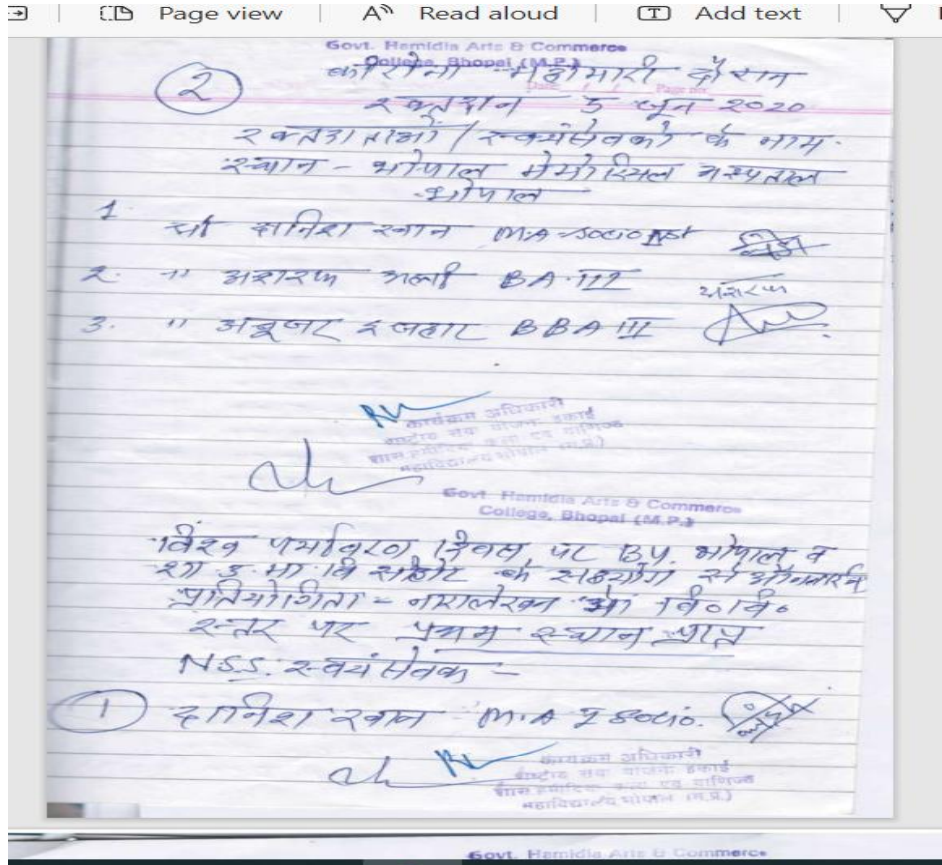 Page view | A Read aloud | T Add text
Govt. Hamidia Arts & Commerce
College, Bhopal (M.P.)
2
कोरोना महामारी दौरान
Date / / Page no
रक्तदान 5 जून 2020
रक्तदाताओं / स्वयंसेवको के नाम
स्थान - भोपाल मेमोरियल अस्पताल
भोपाल
1. दानिश खान M.A-Socio Ist
2. " अशरफ अली BA-III अशरफ
3. " अबूजर इजहार BBA III
कार्यक्रम अधिकारी
राष्ट्रीय सेवा योजना इकाई
शास. हमीदिया कला एवं वाणिज्य
महाविद्यालय भोपाल (म.प्र.)
Govt. Hamidia Arts & Commerce
College, Bhopal (M.P.)
विश्व पर्यावरण दिवस, पर B.U. भोपाल व
के सहयोग से
प्रतियोगिता = नारालेखन वि०वि०
स्तर पर प्रथम स्थान प्राप्त
N.S.S. स्वयंसेवक -
1 दानिश खान M.A I Socio.
कार्यक्रम अधिकारी
राष्ट्रीय सेवा योजना इकाई
शास. हमीदिया कला एवं वाणिज्य
महाविद्यालय भोपाल (म.प्र.)
Govt. Hamidia Arts & Commerce